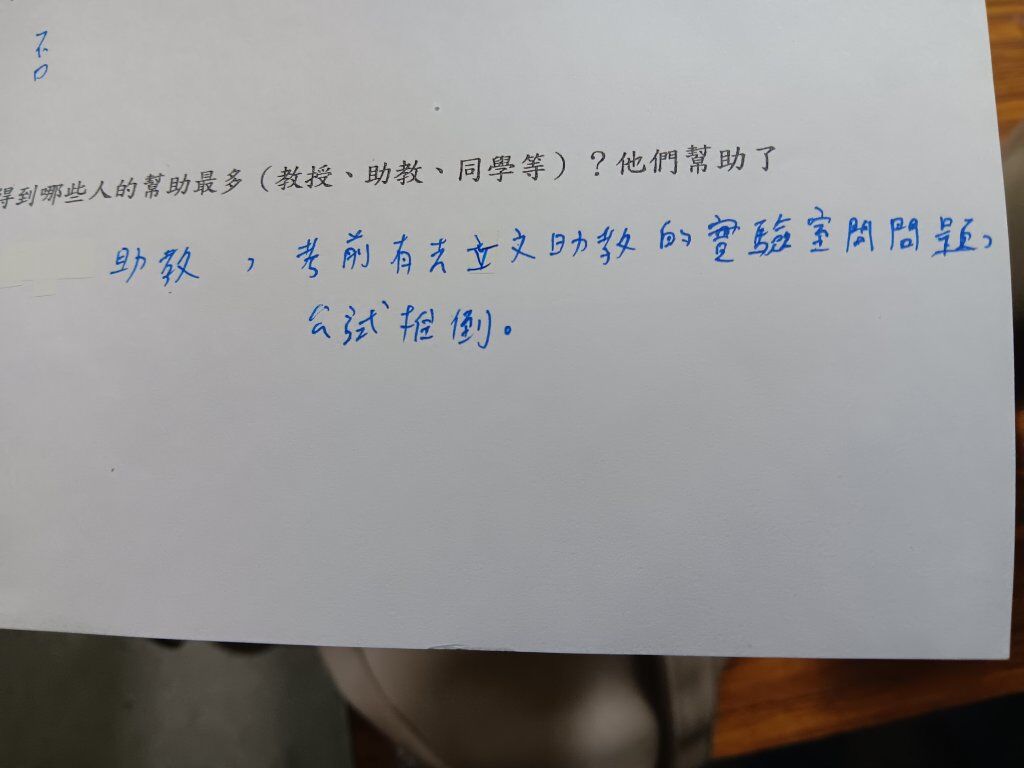 否
得到哪些人的幫助最多（教授、助教、同學等）？他們幫助了
助教，考前有去立文助教的實驗室問問題，
公試推倒。